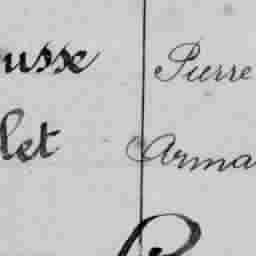 usse Pierre
let Arma